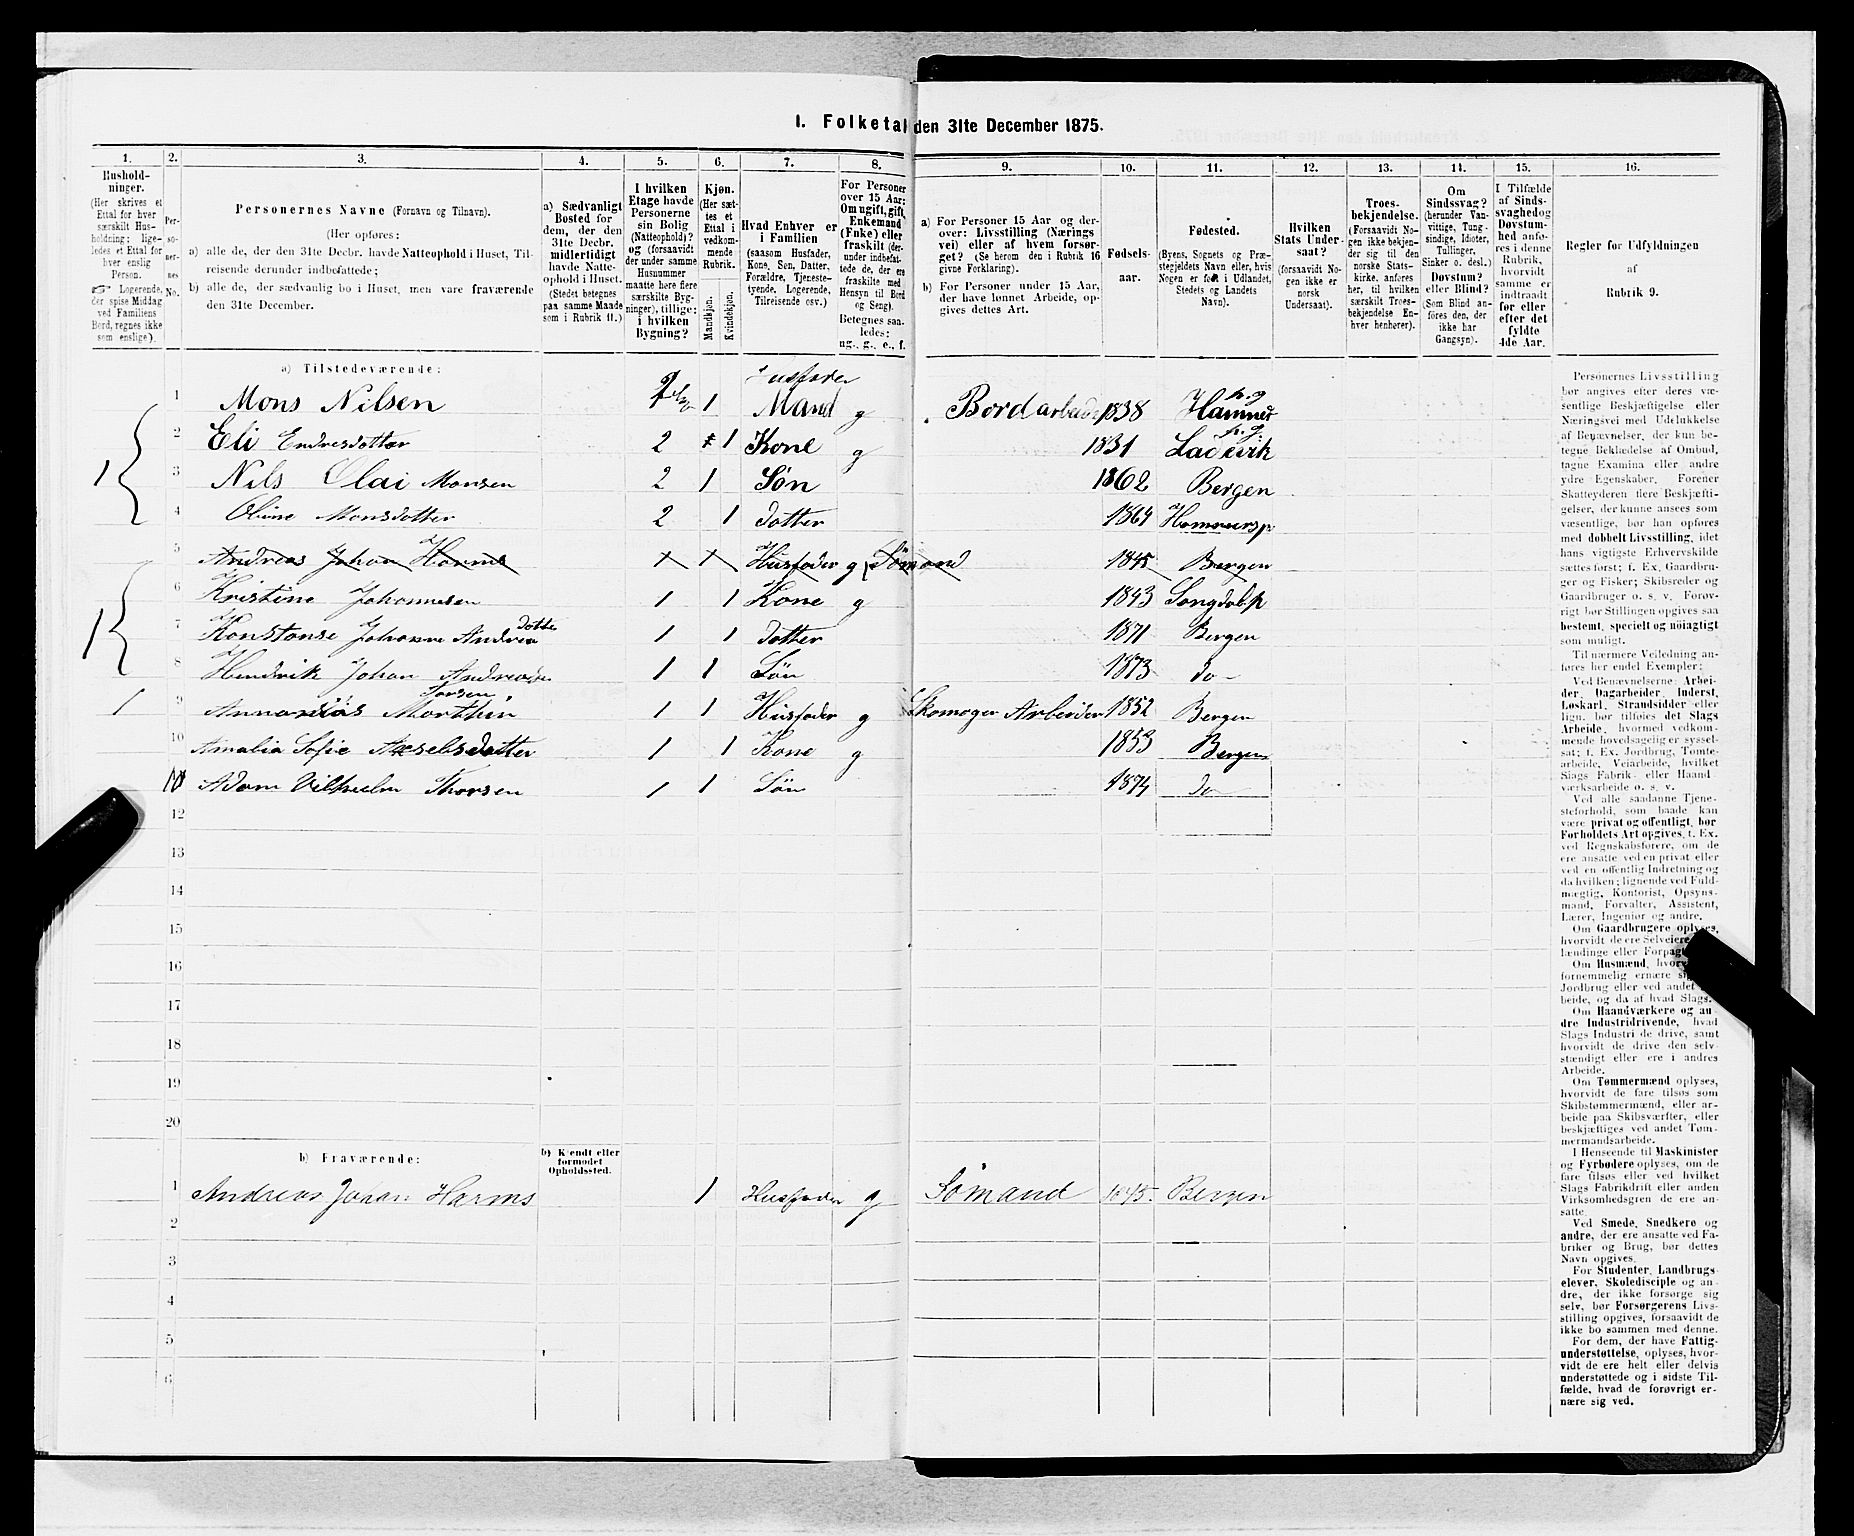 1. Folketal den 31te December 1875.
1. 2. 3. 4. 5. 6. 7. 8. 9. 10. 11. 12. 13. 14. 15. 16.
Husholdninger.
(Her skrives et
Ettal for hver
særskilt Hus-
holdning; lige-
ledes et Ettal for
hver enslig
Person.
☞ Logerende,
der spise Middag
ved Familiens
Bord, regnes ikke
som enslige).
Per-
so-
ner-
nes
No.
Personernes Navne (Fornavn og Tilnavn).
(Her opføres:
a) alle de, der den 31te Decbr. havde Natteophold i Huset, Til-
reisende derunder indbefattede;
b) alle de, der sædvanlig bo i Huset, men vare fraværende
den 31te December.
a) Sædvanligt
Bosted for
dem, der den
31te Decbr.
midlertidigt
havde Natte-
ophold i Huset.
(Stedet betegnes
paa samme Maade
som i Rubrik 11.)
I hvilken
Etage havde
Personerne
sin Bolig
(Natteophold)?
og (forsaavidt
der under samme
Husnummer
maatte høre flere
særskilte Byg-
ninger), tillige:
i hvilken
Bygning?
Kjøn.
(Her sæt-
tes et
Ettal i
vedkom-
mende
Rubrik.
Mandkjøn.
Kvindekjøn.
Hvad Enhver er
i Familien
(saasom Husfader,
Kone, Søn, Datter,
Forældre, Tjeneste-
tyende, Logerende,
Tilreisende osv.)
For Personer
over 15 Aar:
Om ugift, gift,
Enkemand
(Enke) eller
fraskilt (der-
under indbefat-
tede de, der ere
fraskilte med
Hensyn til Bord
og Seng).
Betegnes saa-
ledes:
ug., g., e., f.
a) For Personer 15 Aar og der-
over: Livsstilling (Nærings
vei) eller af hvem forsør-
get? (Se herom den i Rubrik 16
givne Forklaring).
b) For Personer under 15 Aar,
der have lønnet Arbeide, op-
gives dettes Art.
Fødsels-
aar.
Fødested.
(Byens, Sognets og Præ-
stegjeldets Navn eller, hvis
Nogen er født i Udlandet,
Stedets og Landets
Navn).
Hvilken
Stats Under-
saat?
(forsaavidt No-
gen ikke er
norsk
Undersaat).
Troes-
bekjendelse.
(Forsaavidt No-
gen ikke bekjen-
der sig til den
norske Stats-
kirke, anføres
her, til hvilken
særskilt Troes-
bekjendelse En-
hver henhører).
Om
Sindssvag?
(herunder Van-
vittige, Tung-
sindige, Idioter,
Tullinger,
Sinker o. desl.)
Døvstum?
eller Blind?
(Som Blind an-
føres den, der
ikke har
Gangsyn).
I Tilfælde
af Sinds-
svaghed og
Døvstum-
hed anfø-
res i denne
Rubrik,
hvorvidt
samme er
indtraadt
før eller
efter det
fyldte
4de Aar.
Regler for Udfyldningen
af
Rubrik 9.
a) Tilstedeværende:
Husfader
1 Mons Nilsen 1 Mand g Bordarbeider 1838
2 Eli Endresdotter 2 1 Kone g 1831 Ladevik
3 Nils Olai Monsen 2 1 Søn 1862 Bergen
4 Oline Monsdotter 2 1 dotter 1864
5 Andreas Johan Harms Husfader g Sømand 1845 Bergen
6 Kristine Johannesen 1 1 Kone g 1843
7 Konstanse Johanne Andrea dotter 1 1 dotter 1871 Bergen
8 Hendrik Johan 1 1 Søn 1873 do
1 9 Morthin 1 1 Husfader g Skomager Arbeider 1852 Bergen
10 Amalia Sofie Axelsdatter 1 1 Kone g 1853 Bergen
11 Adam Vilhelm Thorsen 1 1 Søn 1874 do
12
13
14
15
16
17
18
19
20
b) Fraværende:
b) Kjendt eller
formodet
Opholdssted.
1 Andreas Johan Harms 1 Husfader g Sømand 1845. Bergen
2
3
4
5
6
Personernes Livsstilling
bør angives efter deres væ-
sentlige Beskjæftigelse eller
Næringsvei med Udelukkelse
af Benævnelser, der kun be-
tegne Beklædelse af Ombud,
tagne Examina eller andre
ydre Egenskaber. Forener
Skatteyderen flere Beskjæfti-
gelser, der kunne ansees som
væsentlige, bør han opføres
med dobbelt Livsstilling, idet
hans vigtigste Erhvervskilde
sættes først; f. Ex. Gaardbru-
ger og Fisker; Skibsreder og
Gaardbruger o. s. v. Forøv-
rigt bør Stillingen opgives saa
bestemt, specielt og nøiagtigt
som muligt.
Til nærmere Veiledning an-
føres her endel Exempler:
Ved Benævnelserne: Arbei-
der, Dagarbeider, Inderst,
Løskarl, Strandsidder eller
lign. bør tilføies det Slags
Arbeide, hvormed vedkom-
mende hovedsagelig er syssel-
sat; f. Ex. Jordbrug, Tomte-
arbeide, Veiarbeide, hvilket
Slags Fabrik- eller Haand-
værksarbeide o. s. v.
Ved alle saadanne Tjene-
steforhold, som baade kan
være privat og offentligt, bør
Forholdets Art opgives, f. Ex.
ved Regnskabsførere, om de
ere ansatte ved en privat eller
ved en offentlig Indretning og
da hvilken; lignende ved Fuld-
mægtig, Kontorist, Opsyns-
mand, Forvalter, Assistent,
Lærer, Ingeniør og andre.
Om Gaardbrugere oplyses,
hvorvidt de ere Selveiere,
lændinge eller
Om Husmænd,
fornemmelig ernære
Jordbrug eller ved andet
beide, og da af hvad Slags.
Om Haandværkere og an-
dre Industridrivende, hvad
Slags Industri de drive, samt
hvorvidt de drive den selv-
stændigt eller ere i andres
Arbeide.
Om Tømmermænd oplyses,
hvorvidt de fare tilsøs som
Skibstømmermænd, eller ar-
beide paa Skibsværfter, eller
beskjæftiges ved andet Tøm-
mermandsarbeide.
I Henseende til Maskinister
og Fyrbødere oplyses, om de
fare tilsøs eller ved hvilket
Slags Fabrikdrift eller anden
Virksomhedsgren de ere an-
satte.
Ved Smede, Snedkere og
andre, der ere ansatte ved Fa-
briker og Brug, bør dettes
Navn opgives.
For Studenter, Landbrugs-
elever, Skoledisciple og an-
dre, der ikke forsørge sig
selv, bør Forsørgerens Livs-
stilling opgives, forsaavidt de
ikke bo sammen med denne.
For dem, der have Fattig-
understøttelse, oplyses, hvor-
vidt de ere helt eller delvis
understøttede og i sidste Til-
fælde, hvad de forøvrigt er-
nære sig ved.